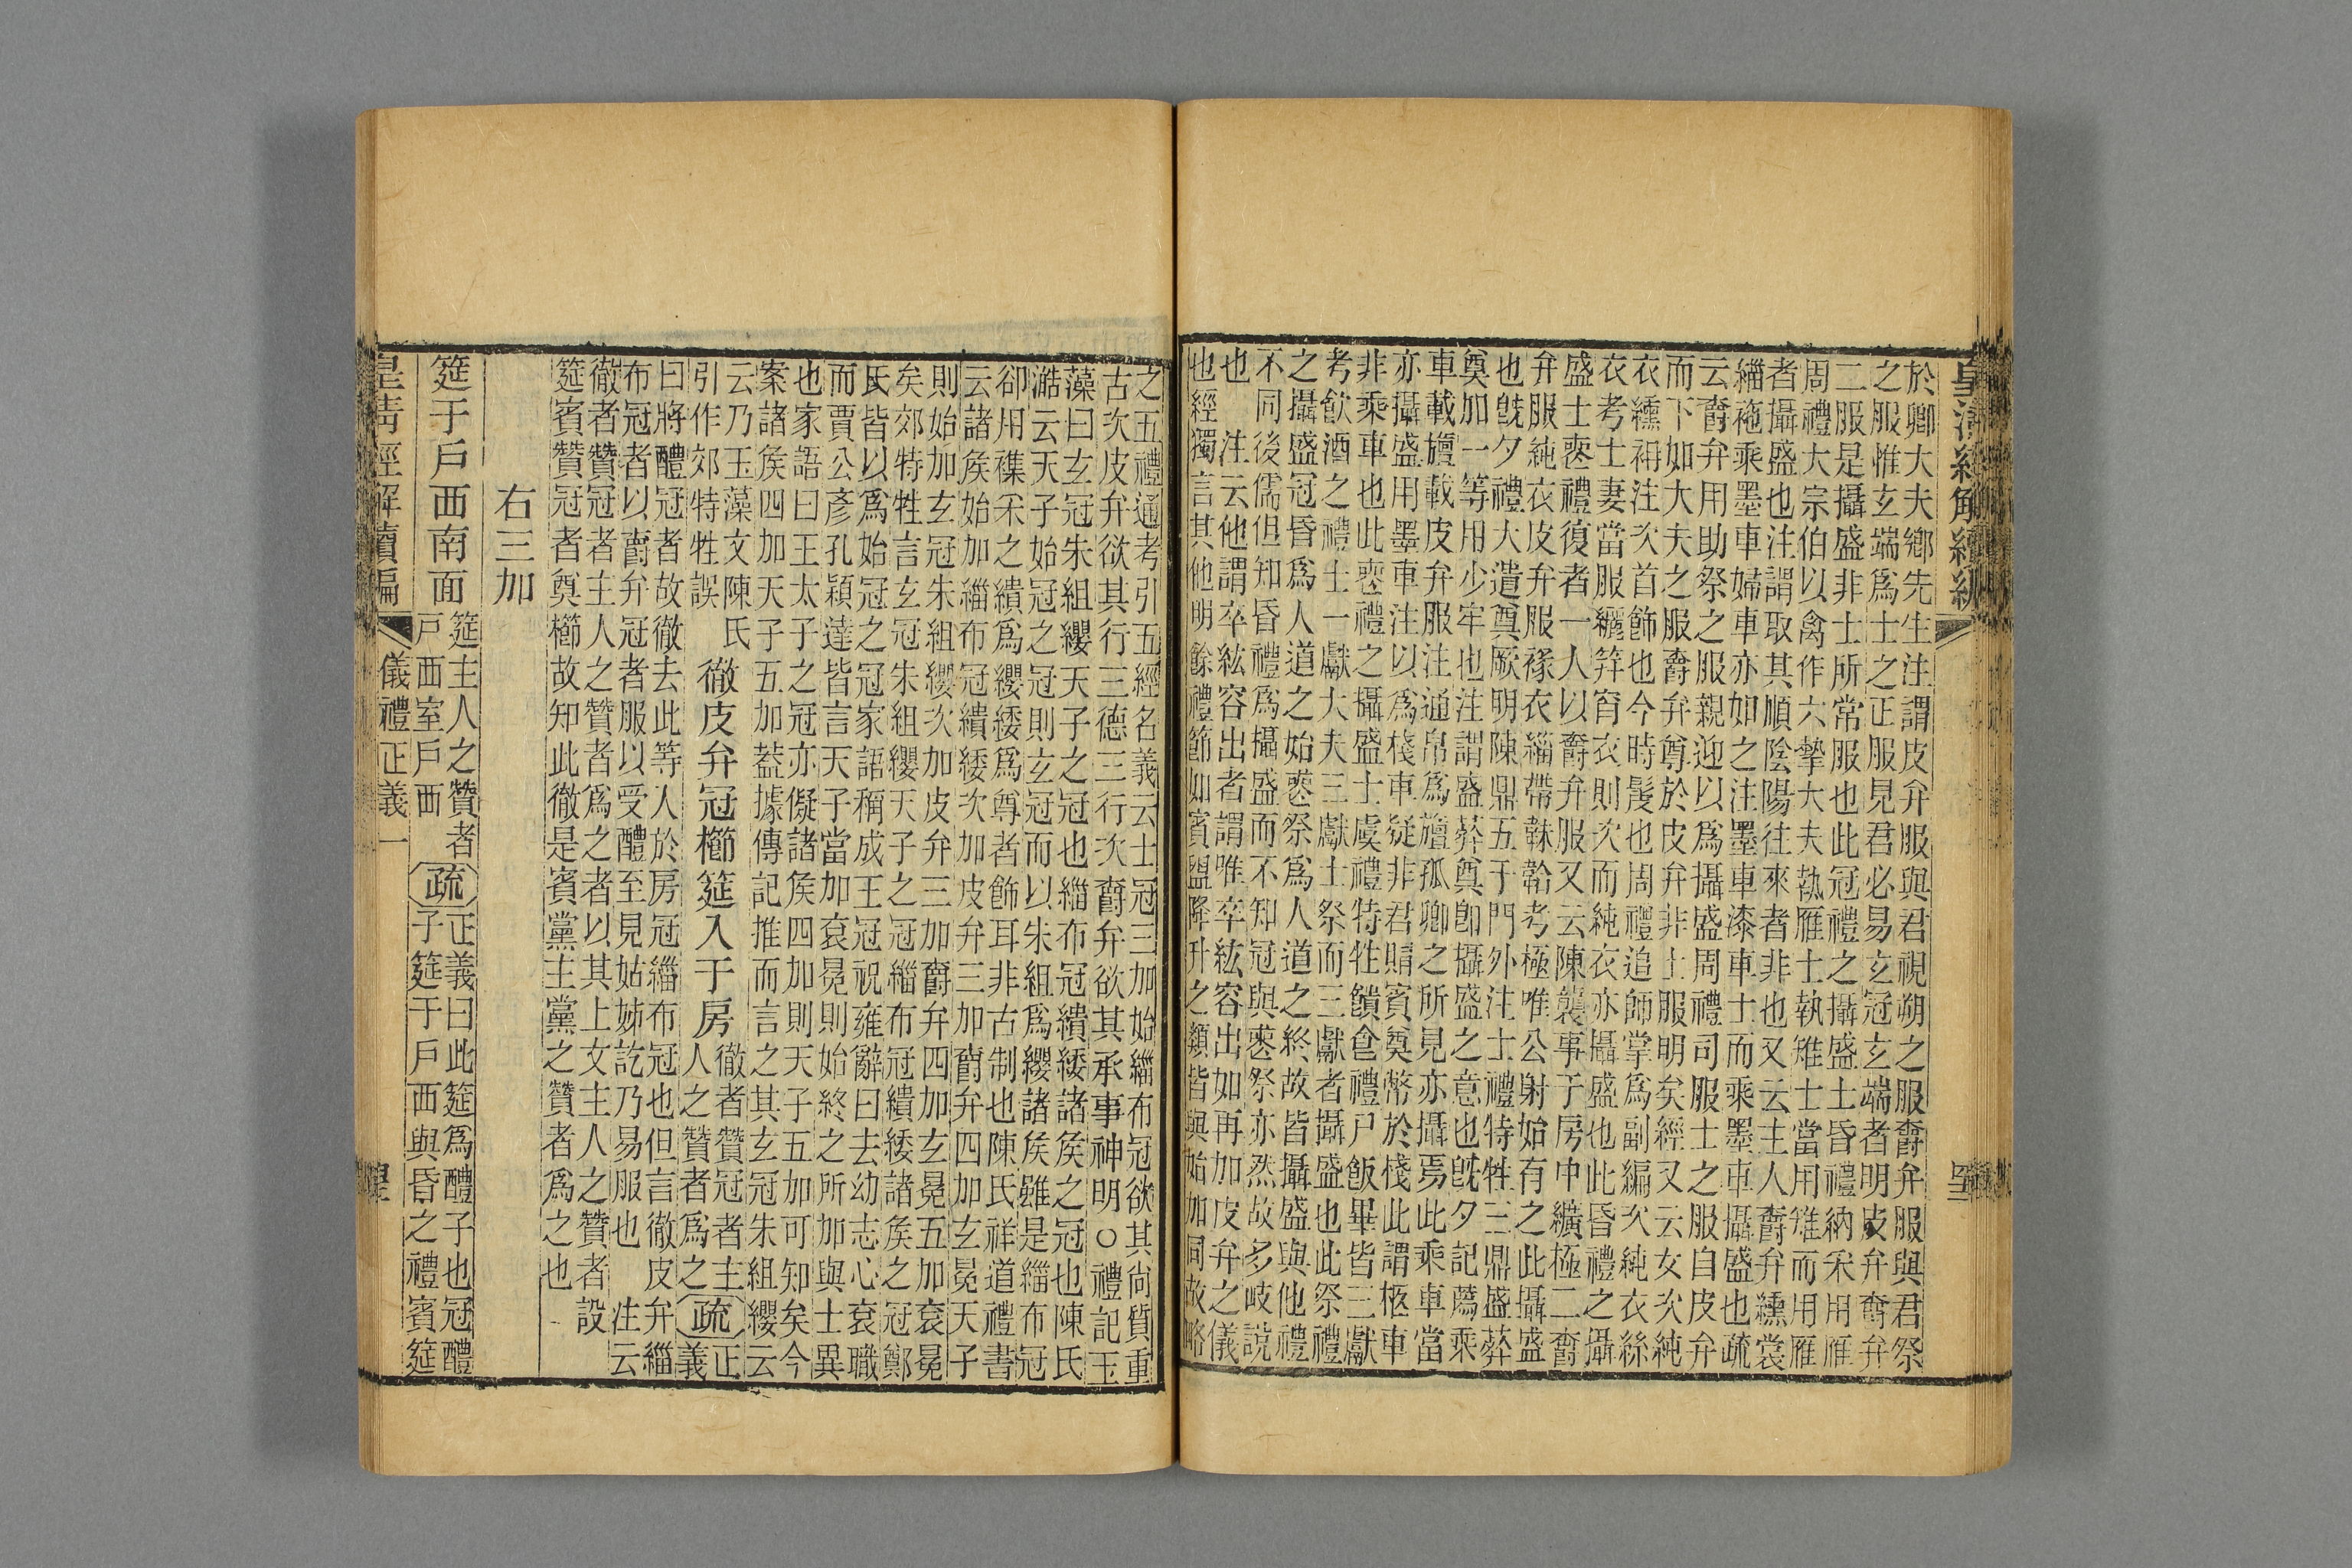 於卿大夫鄉先生注謂皮弁服與君視朔之服爵弁服與君祭
之服惟玄端爲士之正服見君必易玄冠玄端者明皮弁爵弁
二服是攝盛非士所常服也此冠禮之攝盛士昏禮納采用雁
周禮大宗伯以禽作六摯大夫執雁士執雉士當用雉而用雁
者攝盛也注謂取其順陰陽往來者非也又云主人爵弁纁裳
緇袘乘墨車婦車亦如之注墨車漆車士而乘墨車攝盛也疏
云爵弁用助祭之服親迎以爲攝盛周禮司服士之服自皮弁
而下如大夫之服爵弁尊於皮弁非士服明矣經又云女次純
衣纁袡注次首飾也今時髲也周禮追師掌爲副編次純衣絲
衣考士妻當服纚笄宵衣則次而純衣亦攝盛也此昏禮之攝
盛士喪禮復者一人以爵弁服又云陳襲事于房中纊極二爵
弁服純衣皮弁服褖衣緇帶韎韐考極唯公射始有之此攝盛
也旣夕禮大遣奠厥明陳鼎五于門外注士禮特牲三鼎盛葬
奠加一等用少牢也注謂盛葬奠卽攝盛之意也旣夕記薦乘
車載旜載皮弁服注通帛爲旜孤卿之所見亦攝焉此乘車當
亦攝盛用墨車注以爲棧車疑非君賵賓奠幣於棧此謂柩車
非乘車也此喪禮之攝盛士虞禮特牲饋食禮尸飯畢皆三獻
考飲酒之禮士一獻大夫三獻士祭而三獻者攝盛也此祭禮
之攝盛冠昏爲人道之始喪祭爲人道之終故皆攝盛與他禮
不同後儒但知昏禮爲攝盛而不知冠與喪祭亦然故多歧說
也　注云他謂卒紘容出者謂唯卒紘容出如再加皮弁之儀
也經獨言其他明餘禮節如賓盥降升之類皆與始加同故略
之五禮通考引五經名義云士冠三加始緇布冠欲其尚質重
古次皮弁欲其行三德三行次爵弁欲其承事神明○禮記玉
藻曰玄冠朱組纓天子之冠也緇布冠繢緌諸矦之冠也陳氏
澔云天子始冠之冠則玄冠而以朱組爲纓諸矦雖是緇布冠
卻用襍采之繢爲纓緌爲尊者飾耳非古制也陳氏祥道禮書
云諸矦始加緇布冠繢緌次加皮弁三加爵弁四加玄冕天子
則始加玄冠朱組纓次加皮弁三加爵弁四加玄冕五加袞冕
矣郊特牲言玄冠朱組纓天子之冠緇布冠繢緌諸矦之冠鄭
氏皆以爲始冠之冠家語稱成王冠祝雍辭曰去幼志心袞職
而賈公彥孔穎達皆言天子當加袞冕則始終之所加與士異
也家語曰王太子之冠亦儗諸矦四加則天子五加可知矣今
案諸矦四加天子五加葢據傳記推而言之其玄冠朱組纓云
云乃玉藻文陳氏
引作郊特牲誤
徹皮弁冠櫛筵入于房
徹者贊冠者主
人之贊者爲之
疏
正
義
曰將醴冠者故徹去此等人於房冠緇布冠也但言徹皮弁緇
布冠者以爵弁冠者服以受醴至見姑姊訖乃易服也　注云
徹者贊冠者主人之贊者爲之者以其上文主人之贊者　設
筵賓贊冠者奠櫛故知此徹是賓黨主黨之贊者爲之也
右三加
筵于戶西南面
筵主人之贊者
戶西室戶西
疏
正義曰此筵爲醴子也冠醴
子筵于戶西與昏之禮賓筵
皇清經解續編
儀禮正義一